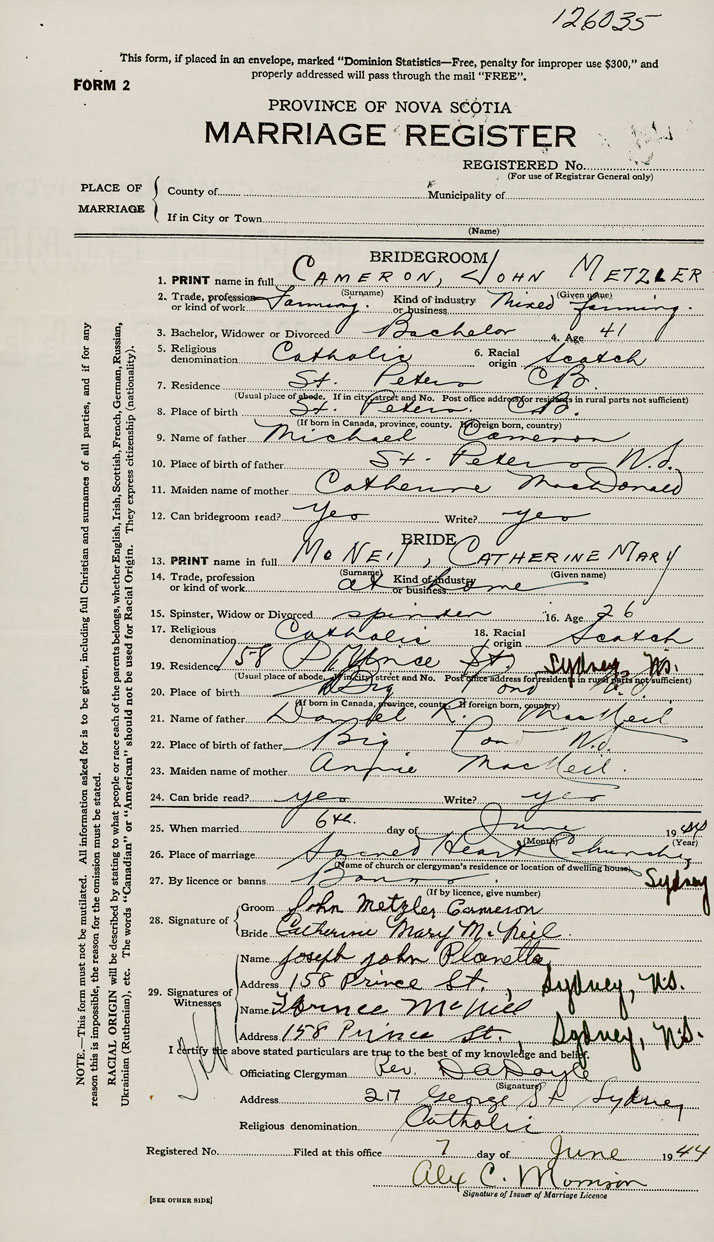 126035
This form, if placed in an envelope, marked "Dominion Statistics—Free, penalty for improper use $300," and
properly addressed will pass through the mail "FREE".
FORM 2
PROVINCE OF NOVA SCOTIA
MARRIAGE REGISTER
REGISTERED No.
(For use of Registrar General only)
PLACE OF MARRIAGE
County of Municipality of
If in City or Town
(Name)
BRIDEGROOM
1. PRINT name in full CAMERON, JOHN METZLER
(Surname) (Given name)
2. Trade, profession or kind of work Farming. Kind of industry or business Mixed farming.
3. Bachelor, Widower or Divorced Bachelor 4. Age 41
5. Religious denomination Catholic 6. Racial origin Scotch
7. Residence St. Peters C.B.
(Usual place of abode. If in city, street and No. Post office address for residents in rural parts not sufficient)
8. Place of birth St. Peters. C.B.
(If born in Canada, province, county. If foreign born, country)
9. Name of father Michael Cameron
10. Place of birth of father St. Peters N.S.
11. Maiden name of mother Catherine MacDonald
12. Can bridegroom read? yes Write? yes
BRIDE
13. PRINT name in full McNEIL, CATHERINE MARY
(Surname) (Given name)
14. Trade, profession or kind of work at home Kind of industry or business
15. Spinster, Widow or Divorced spinster 16. Age 26
17. Religious denomination Catholic 18. Racial origin Scotch
19. Residence 158 Prince St. Sydney, N.S.
(Usual place of abode. If in city, street and No. Post office address for residents in rural parts not sufficient)
20. Place of birth Big Pond
(If born in Canada, province, county. If foreign born, country)
21. Name of father Daniel R. MacNeil
22. Place of birth of father Big Pond N.S.
23. Maiden name of mother Annie MacNeil.
24. Can bride read? yes Write? yes
25. When married 6th. day of June 1944
(Month) (Year)
26. Place of marriage Sacred Heart Church,
(Name of church or clergyman's residence or location of dwelling house)
Sydney
27. By licence or banns Banns
(If by licence, give number)
28. Signature of
Groom John Metzler Cameron
Bride Catherine Mary McNeil.
29. Signatures of Witnesses
Name Joseph John Planetta
Address 158 Prince St., Sydney, N.S.
Name Florence McNeil
Address 158 Prince St., Sydney, N.S.
I certify the above stated particulars are true to the best of my knowledge and belief.
Officiating Clergyman Rev. D A Doyle
(Signature)
Address 217 George St Sydney
Religious denomination Catholic
Registered No. Filed at this office 7 day of June 1944
Alex C. Morrison
Signature of Issuer of Marriage Licence
[SEE OTHER SIDE]
NOTE.—This form must not be mutilated. All information asked for is to be given, including full Christian and surnames of all parties, and if for any
reason this is impossible, the reason for the omission must be stated.
RACIAL ORIGIN will be described by stating to what people or race each of the parents belongs, whether English, Irish, Scottish, French, German, Russian,
Ukrainian (Ruthenian), etc. The words "Canadian" or "American" should not be used for Racial Origin. They express citizenship (nationality).